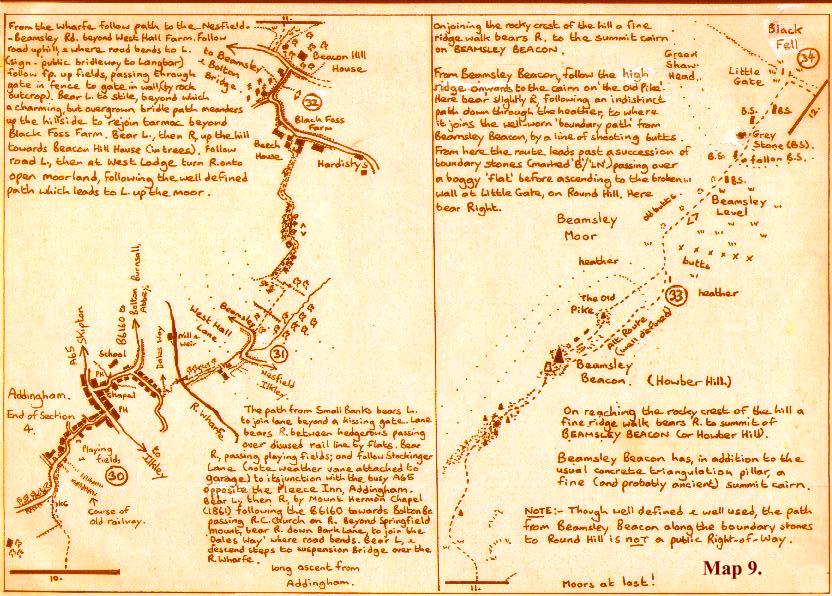 From the Wharfe follow path to the Nesfield-
-Beamsley Rd. beyond West Hall Farm. Follow
road uphill, & where road bends to L.
(sign - public bridleway to Langbar)
follow fp. up fields, passing through
gate in fence to gate in wall (by rock
outcrop). Bear L. to stile, beyond which
a charming, but overgrown bridle path meanders
up the hillside to rejoin tarmac beyond
Black Foss Farm. Bear L, then R, up the hill
towards Beacon Hill House (in trees). Follow
road L, then at West Lodge turn R. onto
open moorland, following the well defined
path which leads to L. up the moor.
11.
to Beamsley
& Bolton
Bridge.
Beacon Hill
House
32
Black Foss
Farm
Beech
House
Hardisty's
A65 Skipton
B6160 to
Bolton Burnsall,
Abbey.
School
PH
Chapel
PH
Dales Way
Mill &
weir
West Hall
Lane
Beamsley
31
Nesfield
Ilkley
R. Wharfe
Addingham.
End of Section
4.
Playing
fields
30
to
Ilkley
KG
Course of
old railway.
10.
The path from Small Banks bears L.
to join lane beyond a kissing gate. Lane
bears R. between hedgerows passing
over disused rail line by flats. Bear
R, passing playing fields; and follow Stockinger
Lane (note weather vane attached to
garage) to its junction with the busy A65
opposite the Fleece Inn, Addingham.
Bear L, then R, by Mount Hermon Chapel
(1861) following the B6160 towards Bolton Br.
passing R.C. Church on R. Beyond Springfield
mount, bear R. down Bark Lane, to join the
'Dales Way' where road bends. Bear L, &
descend steps to suspension Bridge over the
R. Wharfe.
long ascent from
Addingham.
On joining the rocky crest of the hill a fine
ridge walk bears R. to the summit cairn
on BEAMSLEY BEACON.
From Beamsley Beacon, follow the high
ridge onwards to the cairn on 'the Old Pike'.
Here bear slightly R, following an indistinct
path down through the heather, to where
it joins the well worn 'boundary path' from
Beamsley Beacon, by a line of shooting butts.
From here the route leads past a succession of
boundary stones (marked 'B'/'LN') passing over
a boggy 'flat' before ascending to the broken
wall at Little Gate, on Round Hill. Here
bear Right.
Green
Shaw
Head.
Black
Fell
34
Little
Gate
12.
B.S.
B.S.
Grey
Stone (BS).
B.S.
fallen B.S.
B.S.
Beamsley
Level
old butts
Beamsley
Moor
heather
butts
33
heather
The Old
Pike
Alt. Route
(well defined)
Beamsley
Beacon. (Howber Hill.)
On reaching the rocky crest of the hill a
fine ridge walk bears R. to summit of
BEAMSLEY BEACON (or Howber Hill).
Beamsley Beacon has, in addition to the
usual concrete triangulation pillar, a
fine (and probably ancient) summit cairn.
NOTE:- Though well defined & well used, the path
from Beamsley Beacon along the boundary stones
to Round Hill is NOT a public Right-of-Way.
Map 9.
11.
Moors at last!